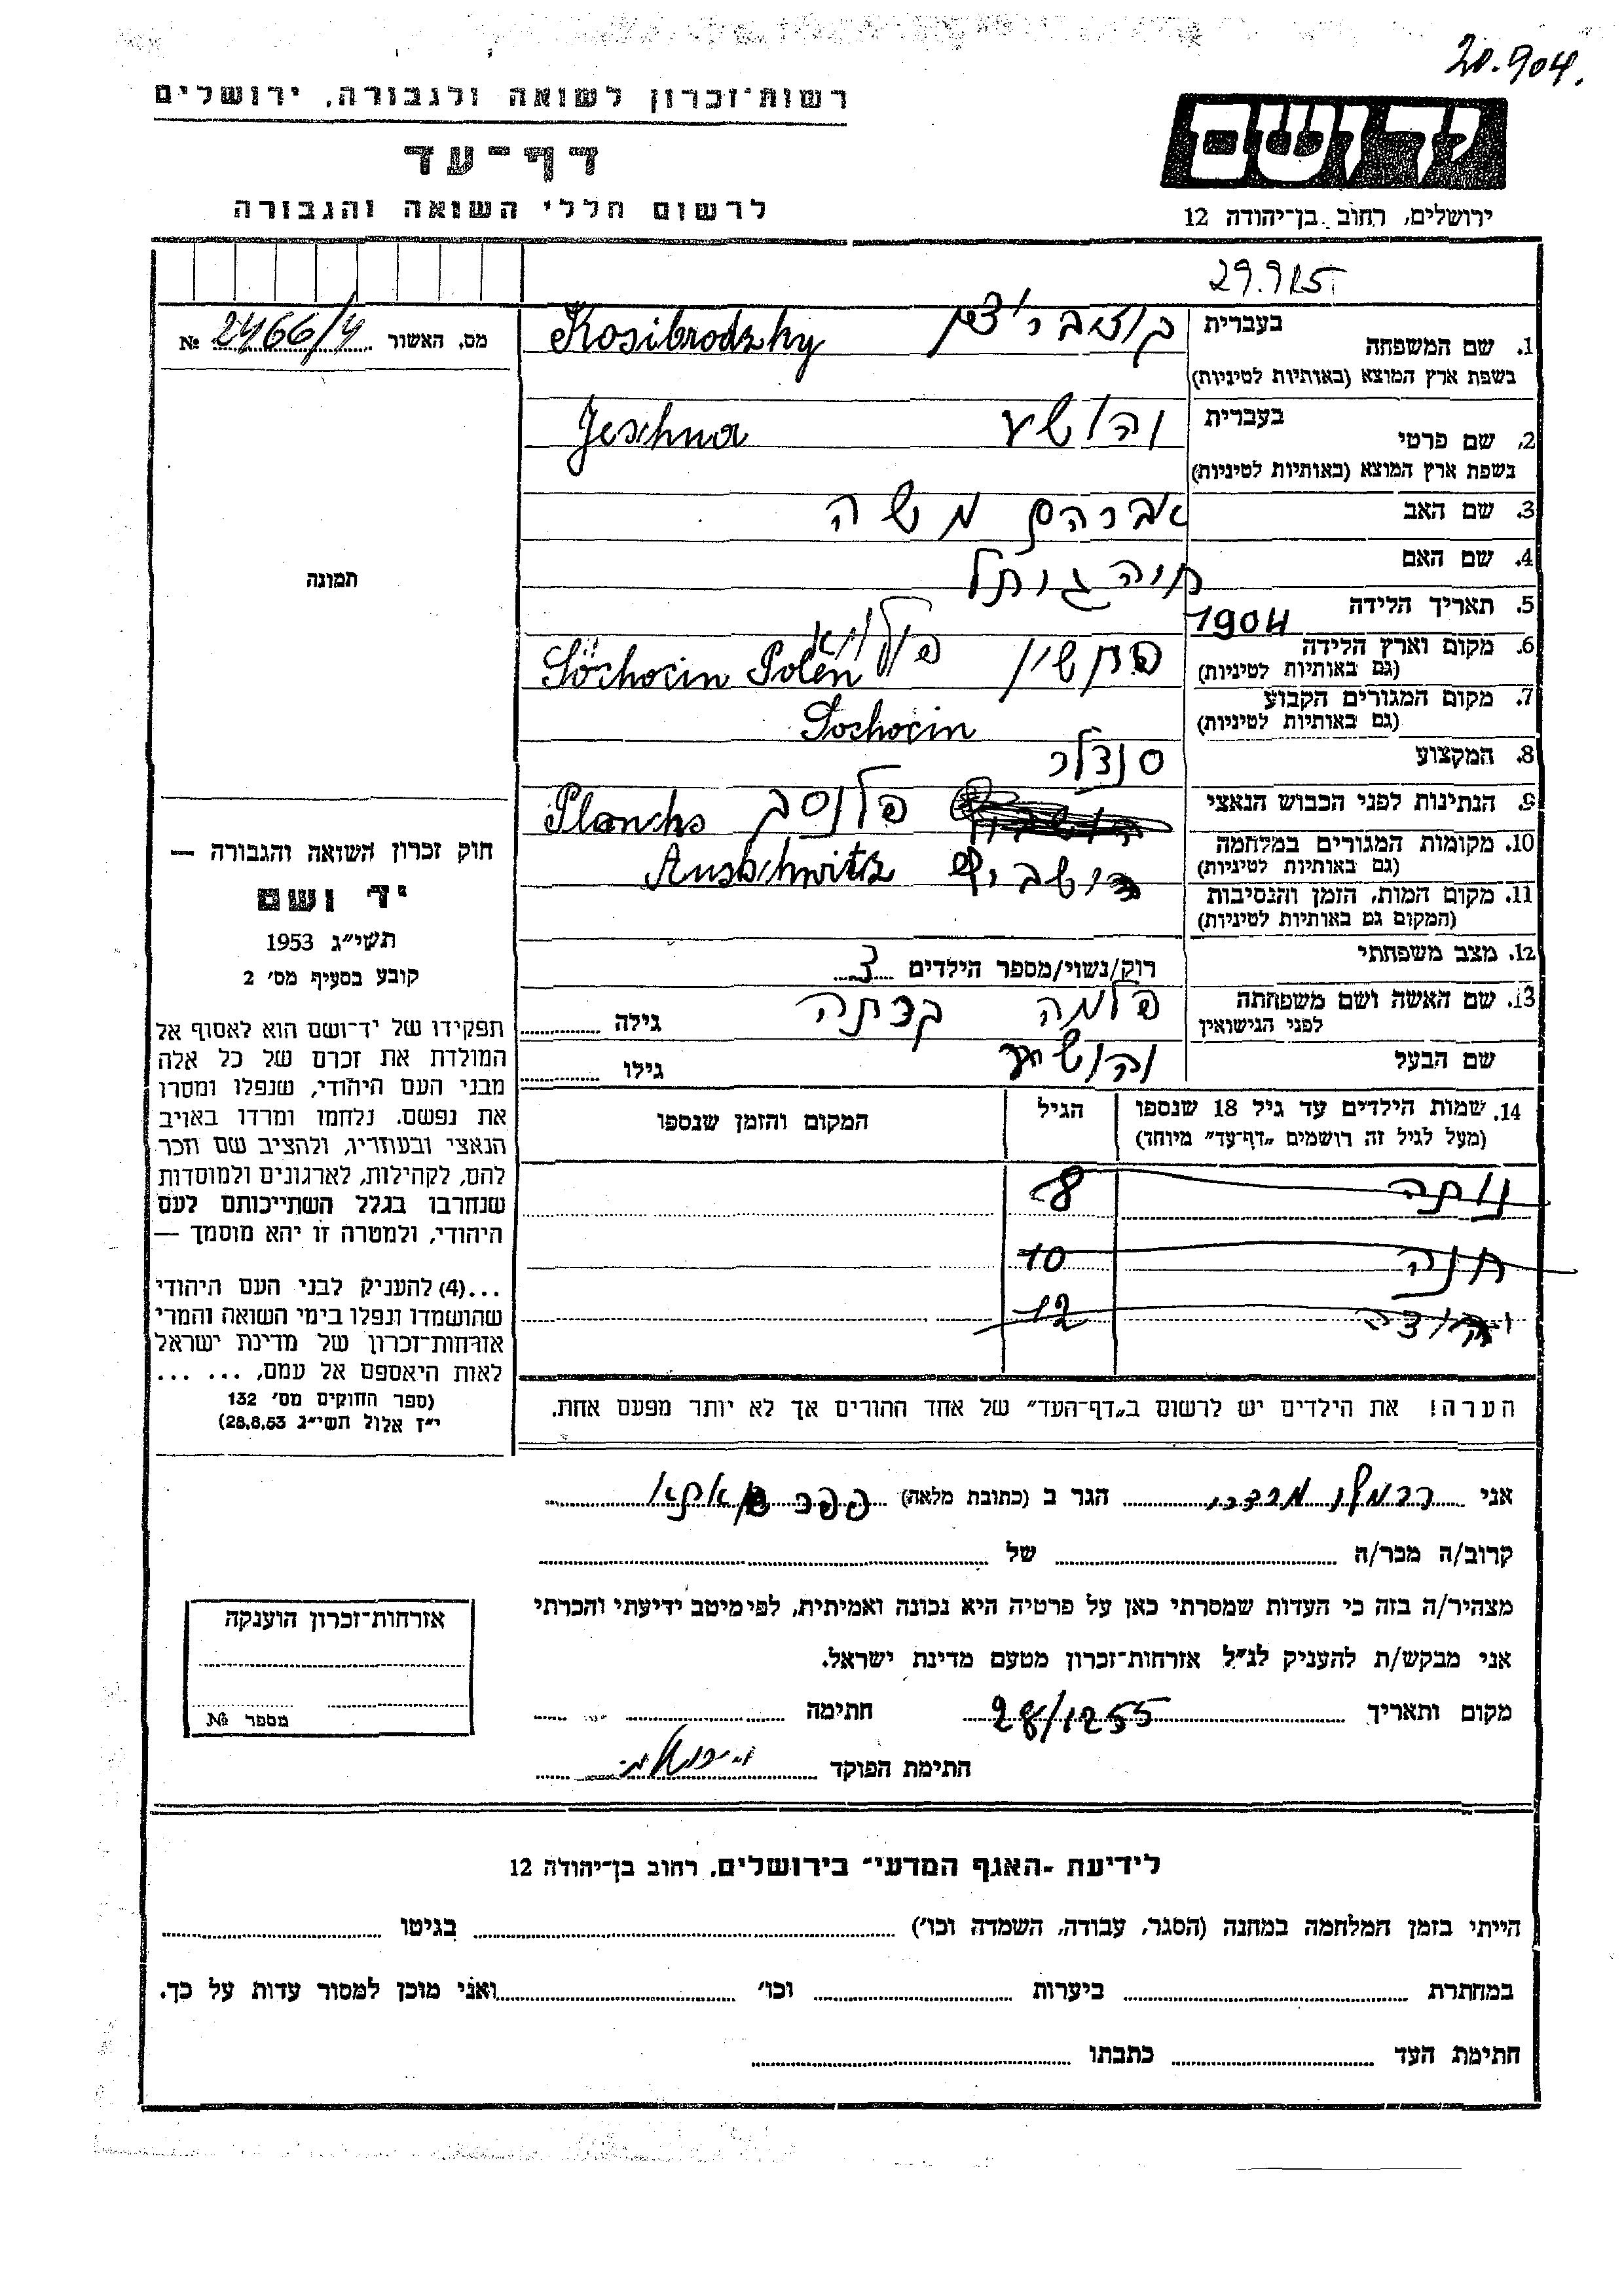 20.904.
רשות-זכרון לשואה ולגבורה, ירושלים
דף-עד
לרשום חללי השואה והגבורה
ידושם
ירושלים, רחוב בן-יהודה 12
29.915
מס. האשור 2466/4 №
1. שם המשפחה
בעברית
בשפת ארץ המוצא (באותיות לטיניות)
Kosibrodzky
2. שם פרטי
בעברית
בשפת ארץ המוצא (באותיות לטיניות)
יהושע Jeschua
3. שם האב אברהם משה
4. שם האם חיה גיתל
5. תאריך הלידה 1904
6. מקום וארץ הלידה
(גם באותיות לטיניות)
פולניא Söchocin Polen
7. מקום המגורים הקבוע
(גם באותיות לטיניות)
Sochocin
8. המקצוע סנדלר
9. הנתינות לפני הכבוש הנאצי
10. מקומות המגורים במלחמה
(גם באותיות לטיניות)
פלונסק Planchs
11. מקום המות, הזמן והנסיבות
(המקום גם באותיות לטיניות)
Auschwitz
12. מצב משפחתי רוק/נשוי/מספר הילדים 3
13. שם האשה ושם משפחתה
לפני הגישואין
גילה
שם הבעל יהושע גילו
14. שמות הילדים עד גיל 18 שנספו
(מעל לגיל זה רושמים „דף-עד" מיוחד)
הגיל
המקום והזמן שנספו
8
חנה 10
12
הערה! את הילדים יש לרשום ב„דף-העד" של אחד ההורים אך לא יותר מפעם אחת.
תמונה
חוק זכרון השואה והגבורה —
יד ושם
תשי"ג 1953
קובע בסעיף מס' 2
תפקידו של יד-ושם הוא לאסוף אל
המולדת את זכרם של כל אלה
מבני העם היהודי, שנפלו ומסרו
את נפשם. נלחמו ומרדו באויב
הנאצי ובעוזריו, ולהציב שם וזכר
להם, לקהילות, לארגונים ולמוסדות
שנחרבו בגלל השתייכותם לעם
היהודי, ולמטרה זו יהא מוסמך —
...(4) להעניק לבני העם היהודי
שהושמדו ונפלו בימי השואה והמרי
אזרחות-זכרון של מדינת ישראל
לאות היאספם אל עמם, ... ...
(ספר החוקים מס' 132
י"ז אלול תשי"ג 28.8.53)
אני הגר ב (כתובת מלאה)
קרוב/ה מכר/ה של
מצהיר/ה בזה כי העדות שמסרתי כאן על פרטיה היא נכונה ואמיתית, לפי מיטב ידיעתי והכרתי
אני מבקש/ת להעניק לנ"ל אזרחות-זכרון מטעם מדינת ישראל.
מקום ותאריך 28/1255 חתימה
חתימת הפוקד
אזרחות-זכרון הוענקה
מספר №
לידיעת -האגף המדעי- בירושלים, רחוב בן-יהודה 12
הייתי בזמן המלחמה במחנה (הסגר, עבודה, השמדה וכו') בגיטו
במחתרת ביערות וכו' ואני מוכן למסור עדות על כך.
חתימת העד כתבתו